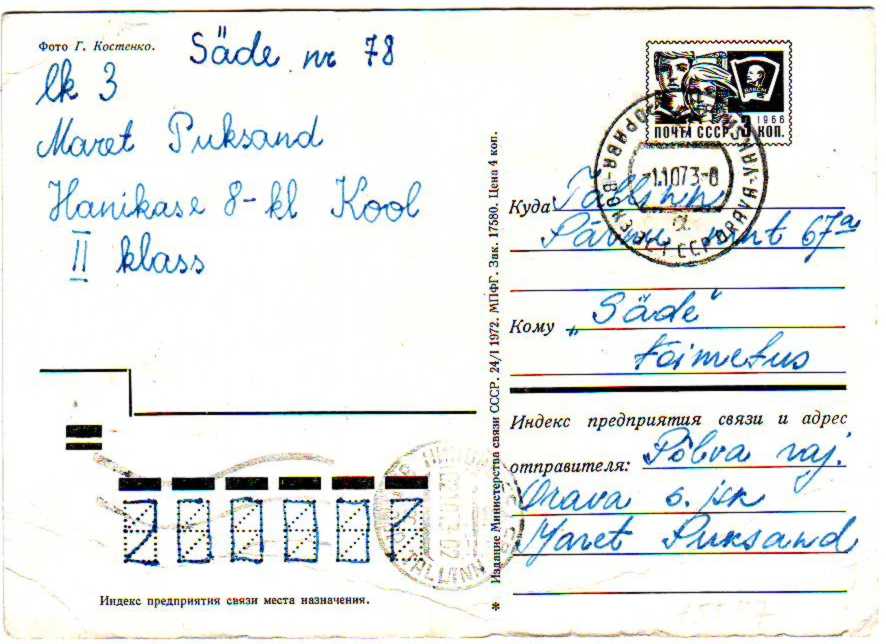 Фото Г. Костенко.
Säde nr 78
lk 3
Maret Puksand
Hanikase 8-kl Kool
II klass
200001
Индекс предприятия связи места назначения.
* Издание Министерства связи СССР. 24/I 1972. МПФГ. Зак. 17580. Цена 4 коп.
1966
ПОЧТА СССР 3 КОП.
-1.1073-8
ORAVA
TALLINN
Куда Tallinn
Pärnu mnt 67a
Кому „Säde"
toimetus
Индекс предприятия связи и адрес
отправителя: Põlva raj.
Orava s. jsk
Maret Puksand